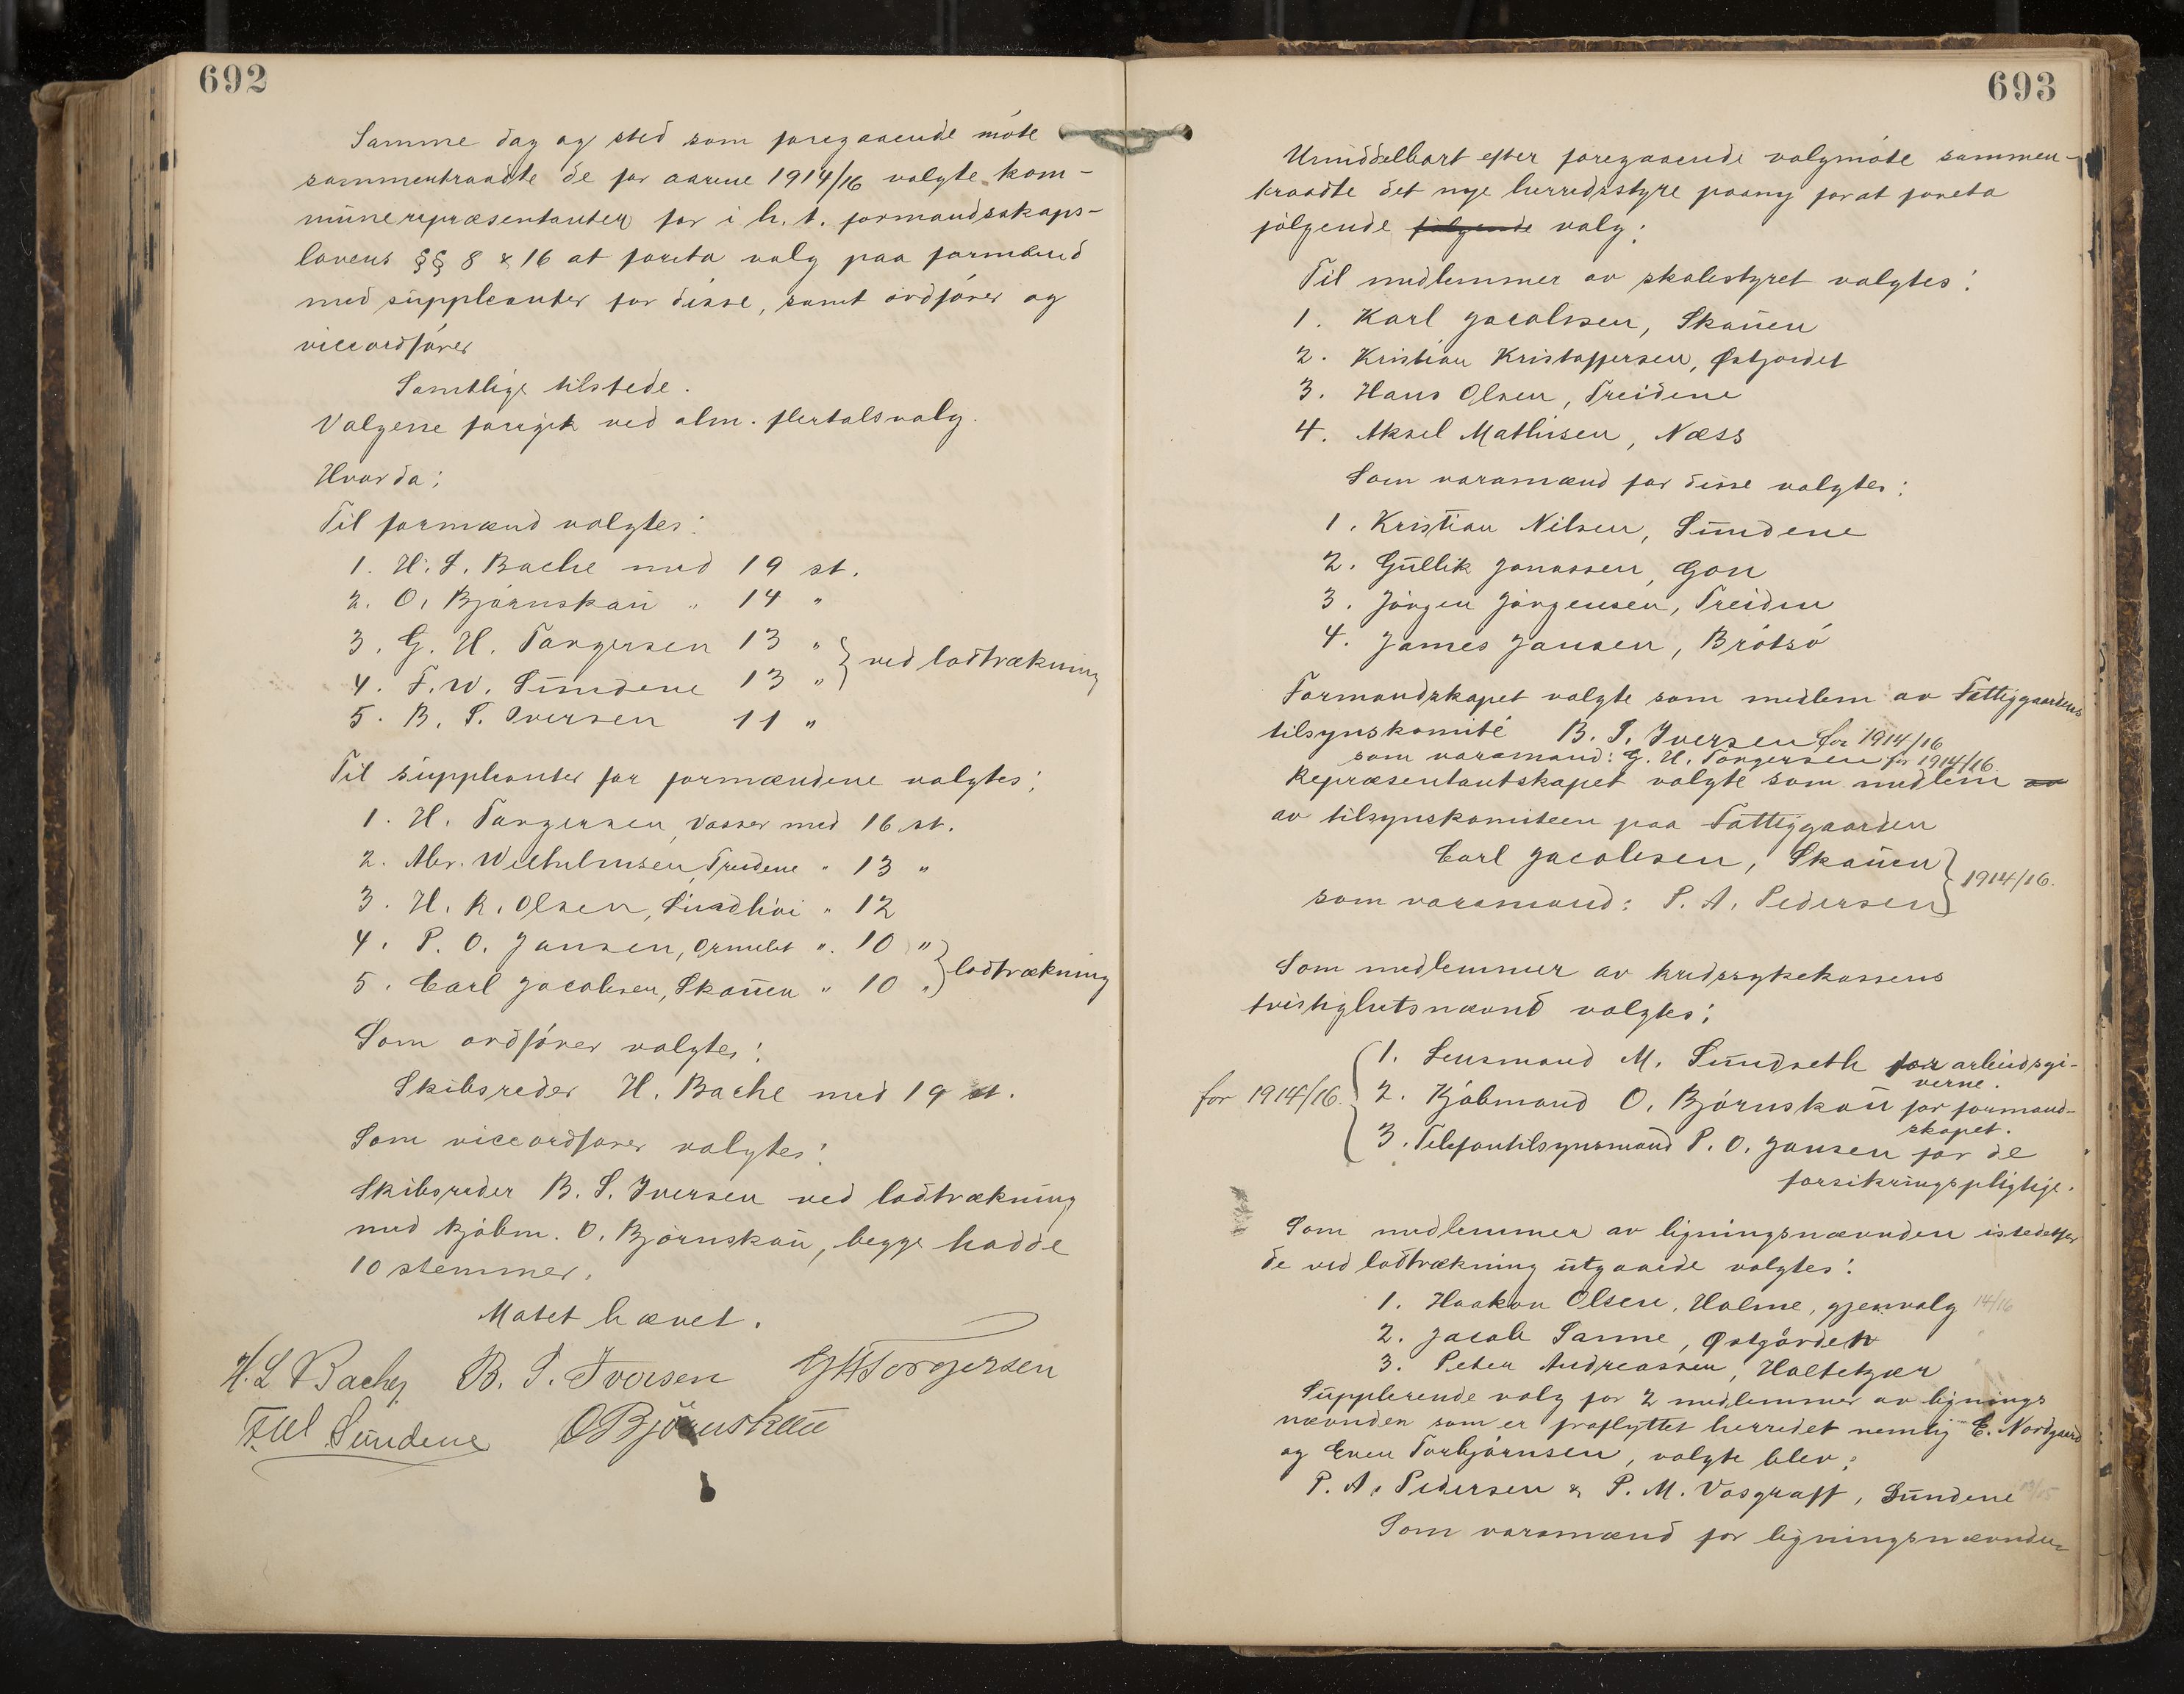 692
Samme dag og sted som foregaaende møte
sammentraadte de for aarene 1914/16 valgte kom-
munerepræsentanter for i h. t. formandsskaps-
lovens §§ 8 & 16 at foreta valg paa formænd
med suppleanter for disse, samt ordfører og
viceordfører
Samtlige tilstede.
Valgene foregik ved alm. flertalsvalg.
Hvorda:
Til formænd valgtes:
1. H. L. Bache med 19 st.
2. O. Bjørnskau " 14 "
3. G. H. Torgersen 13 "
4. F. W. Sundene 13 " } ved lodtrækning
5. B. S. Iversen 11 "
Til suppleanter for formændene valgtes:
1. H. Torgersen, Vasser med 16 st.
2. Abr. Wilhelmsen, Treidene " 13 "
3. H. R. Olsen, " 12
4. P. O. Jansen, Ormelet " 10 "
5. Carl Jacobsen, Skauen " 10 " } lodtrækning
Som ordfører valgtes:
Skibsreder H. Bache med 19 st.
Som viceordfører valgtes:
Skibsreder B. S. Iversen ved lodtrækning
med kjøbm. O. Bjørnskau, begge hadde
10 stemmer.
Møtet hævet.
H. L Bache B. S. Iversen GHTorgersen
F.W Sundene OBjörnskau
693
Umiddelbart efter foregaaende valgmøte sammen-
traadte det nye herredsstyre paany for at foreta
følgende følgende valg:
Til medlemmer av skolestyret valgtes:
1. Karl Jacobsen, Skauen
2. Kristian Kristoffersen, Østjordet
3. Hans Olsen, Treidene
4. Aksel Mathisen, Næss
Som varamænd for disse valgtes:
1. Kristian Nilsen, Sundene
2. Gullik Jonassen, Gon
3. Jørgen Jørgensen, Treiden
4. James Jansen, Brøtsø
Formandskapet valgte som medlem av Fattiggaardens
tilsynskomité B. S. Iversen for 1914/16
som varamand: G. H. Torgersen for 1914/16.
Repræsentantskapet valgte som medlem av
av tilsynskomiteen paa Fattiggaarden
Carl Jacobsen, Skauen
som varamand: P. A. Pedersen } 1914/16.
Som medlemmer av kredssykekassens
tvistighetsnævnd valgtes:
1. Lensmand M. Sundseth for arbeidsgi-
verne.
for 1914/16. { 2. Kjøbmand O. Bjørnskau for formand-
skapet.
3. Telefontilsynsmand P. O. Jansen for de
forsikringspligtige.
Som medlemmer av ligningsnævnden istedetfor
de ved lodtrækning utgaaede valgtes:
1. Haakon Olsen, Holme, gjenvalg 14/16
2. Jacob Sanne, Østgården
3. Peter Andreassen, Holtekjær
Supplerende valg for 2 medlemmer av lignings
nævnden som er fraflyttet herredet nemlig E. Nordgaard
og Even Torbjørnsen, valgte blev:
P. A. Pedersen & P. M. Vosgraff, Sundene
Som varamænd for ligningsnævnden